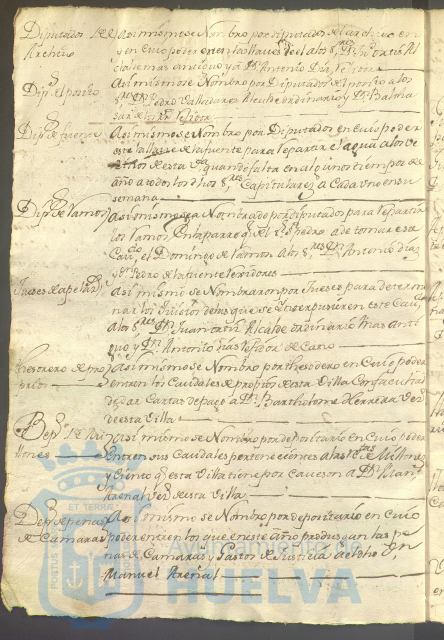 Diputados del Archivo
Asi mismo se Nombro por diputados del archivo en
y en Cuio poder esten las llaves de el a los Sres Dn Juan ortiz Al
calde mas antiguo y a Dn Antonio Diaz Rexidor
Dipdo del posito
Asi mismo se Nombro por Diputados del posito a los
Sres Dn Pedro Calladares Alcalde ordinario y Dn Baltha
sar Rexidor
Dipdo de fuente
Asi mismo se Nombro por Diputados en Cuio poder
este la llave de la fuente para repartir el agua a los Ve
de esta Va quando falta en algunos tiempos del
año a todos los dhos Sres Capitulares a Cada Uno en su
semana
Dipdo de Ramos
Asi mismo se a Nombrado por diputados para repartir
los Ramos en la parroql de el Sor Sn Pedro de tomar esta
Cavo el Domingo de Ramos a los Sres Dn Antonio diaz
y Dn Pedro de la fuente rexidores
Jueses de apelaon
Asi mismo se Nombraron por Jueses para determi
nar los Juisios de los que se interpusieren en este Cavdo
a los Sres Dn Juan ortiz Alcalde ordinario mas anti
guo y Dn Antonio Diaz Rexidor de Cano
thesorero de pro
pios
Asi mismo se Nombro por thesorero en Cuio poder
entren los Caudales de propios de esta Villa Con facultad
de dar Cartas de pago a Dn Bartholome Herrera Veo
de esta Villa
Deposo de Mi
llones
Asi mismo se Nombro por depositario en Cuio poder
entren sus Caudales pertenecientes a las rtas de Millones
y Ciento qe esta Villa tiene por Caveson a Dn Manl
Arenal Veo de esta Villa
Deposo de penas
de Camaras
Asi mismo se Nombro por depositario en Cuio
poder entren los que en este año produsgan las pe
nas de Camaras y Gastos de Justicia a el dho Dn
Manuel Arenal
PORTUS
ET TERRA
Ayuntamiento de
HUELVA